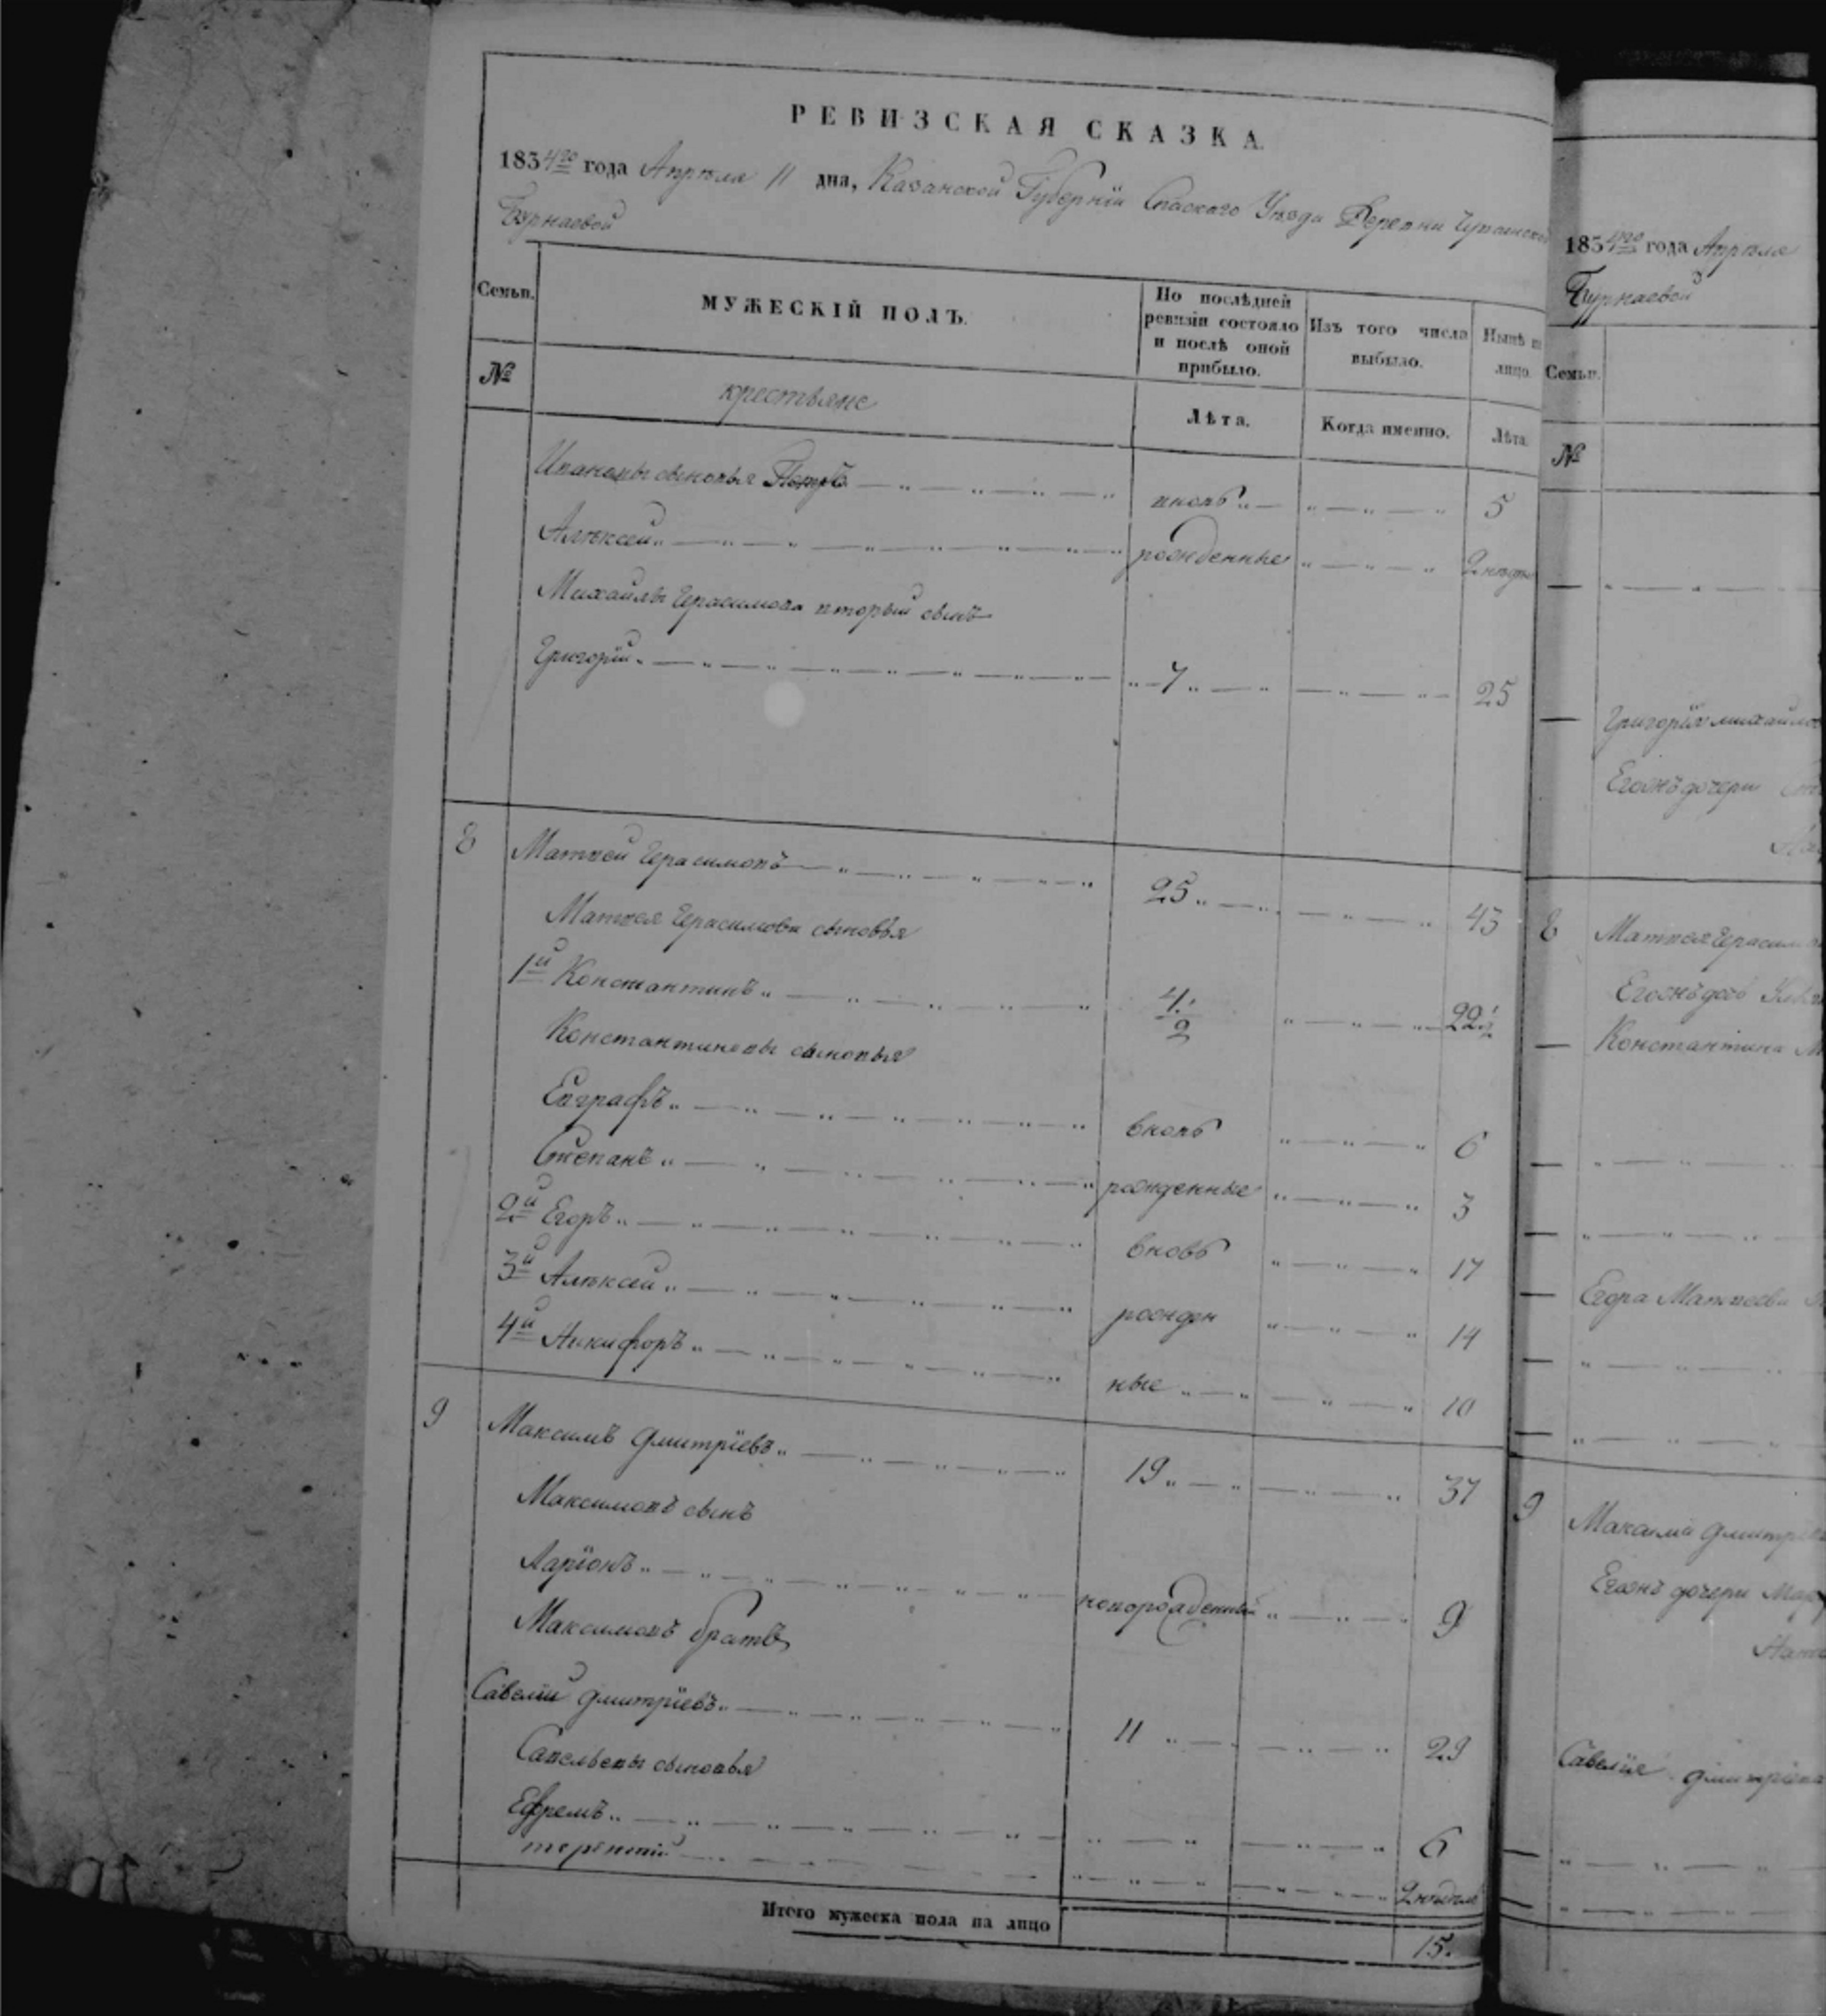 РЕВИЗСКАЯ СКАЗКА.
1834го года Апрѣля 11 дня, Казанской Губерніи Спаскаго Уѣзда Деревни
Бурнаевой
Семьи.
МУЖЕСКІЙ ПОЛЪ.
По послѣдней ревизіи состояло и послѣ оной прибыло.
Изъ того числа выбыло.
Нынѣ на лицо.
№
крестьяне
Лѣта.
Когда именно.
Лѣта.
Ивановы сыновья Петръ вновь 5
Алѣксей рожденные 2 недѣли
Михайлы Герасимова второй сынъ
Григорій 7 25
8 Матвей Герасимовъ 25 43
Матвея Герасимова сыновья
1й Константинъ 4 1/2 22 1/2
Константиновы сыновья
Евграфъ вновь 6
Степанъ рожденные 3
2й Егоръ вновь 17
3й Алѣксей рожден 14
4й Никифоръ ные 10
9 Максимъ Дмитріевъ 19 37
Максимовъ сынъ
Ларіонъ новорожденный 9
Максимовъ братъ
Савелій Дмитріевъ 11 29
Савельевы сыновья
Ефремъ 6
терентій 2 недѣли
Итого мужеска пола на лицо 15.
1834го года Апрѣля
Бурнаевой
Семьи.
№
Григорія михайлов
Егожъ дочери
8 Матвея Герасимов
Егожъ дочь
Константина М
Егора Матвеева
9 Максима Дмитріева
Егожъ дочери
Савелія Дмитріева